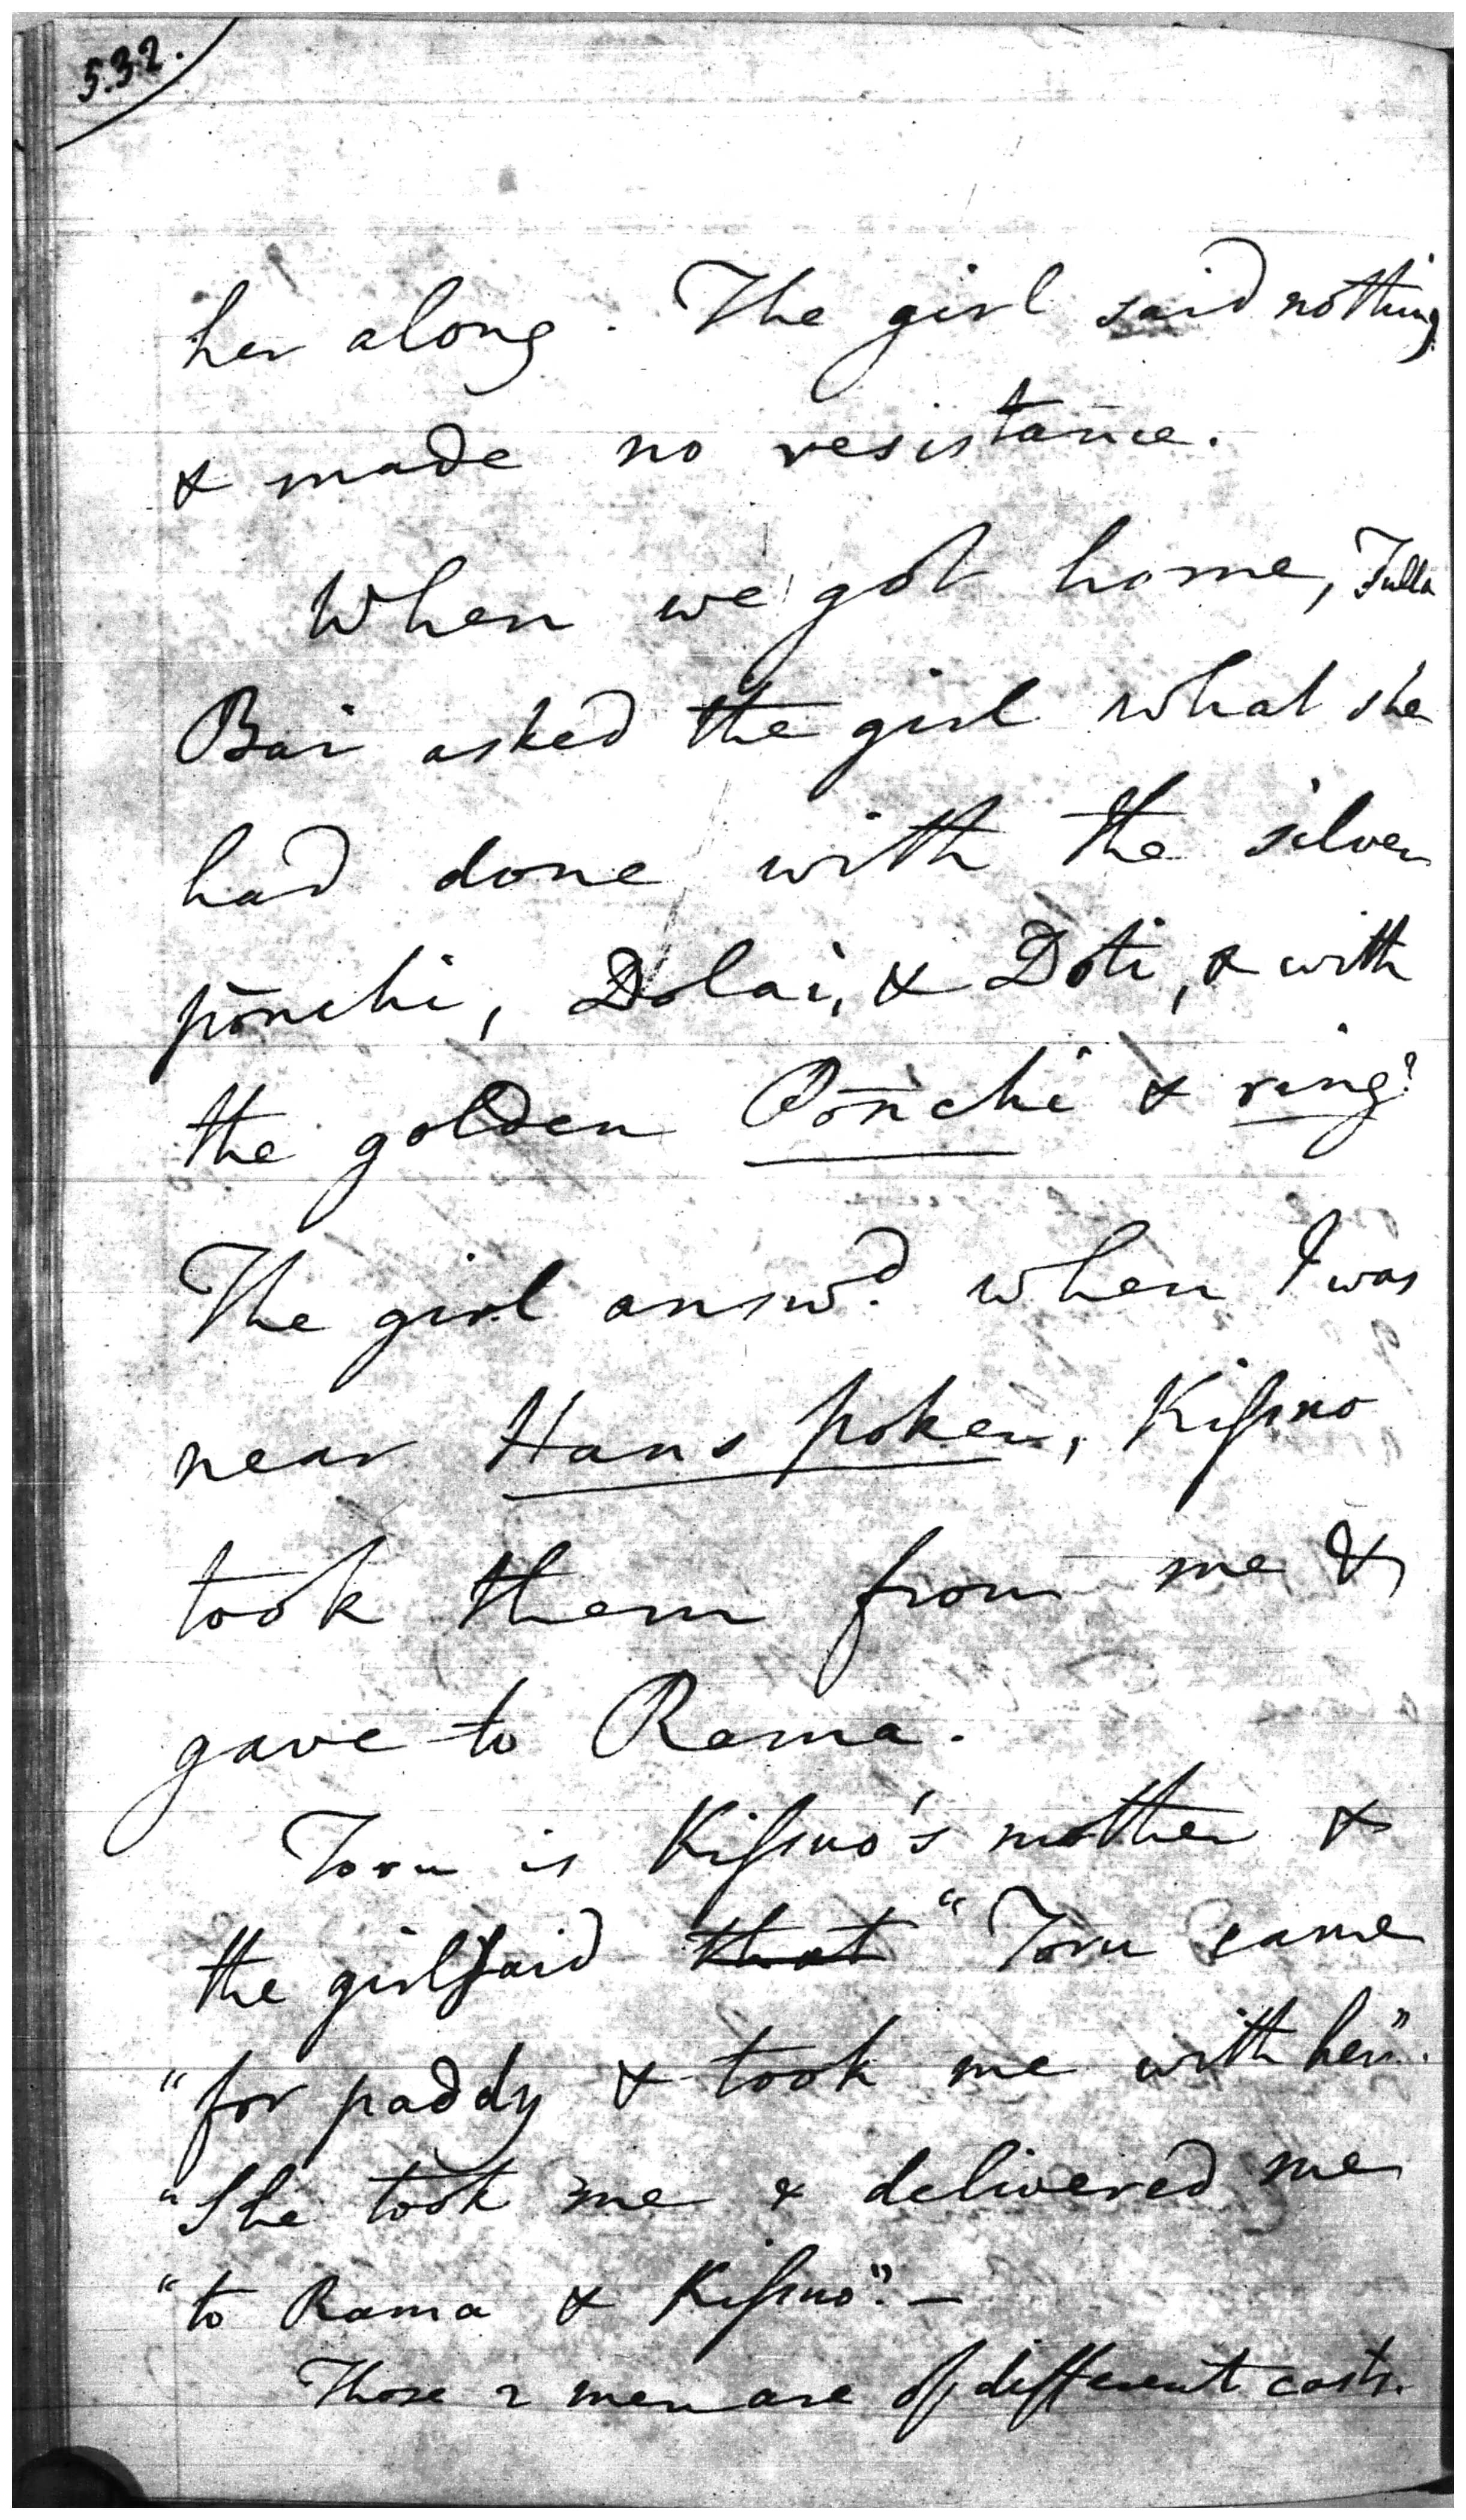 532.
her along. The girl said nothing
& made no resistance.
When we got home, Tulla
Bai asked the girl what she
had done with the silver
pōnchi, Dolai, & Doti, & with
the golden Pōnchi & ring?
The girl answd. when I was
near Hans poken, Kissno
took them from me &
gave to Rama.
Toru is Kissno's mother &
the girl said that "Toru came
"for paddy & took me with her".
"She took me & delivered me
"to Rama & Kissno". —
Those 2 men are of different casts.